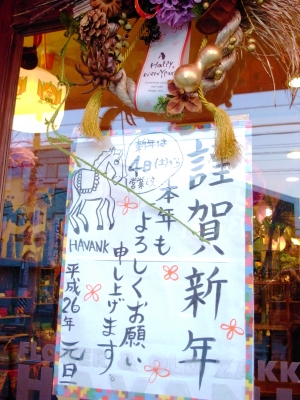 A Happy
New Year
謹賀新年
新年は
4日(土)から
営業して
本年も
よろしくお願い
申し上げます。
平成26年 元旦
HAVANK